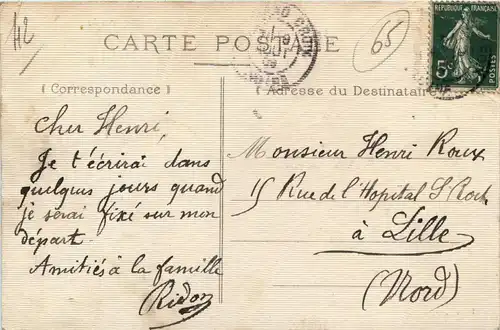 42
CARTE POSTALE
65
RÉPUBLIQUE FRANÇAISE
5c
POSTES
(Correspondance)
(Adresse du Destinataire
Cher Henri,
Je t'écrirai dans
quelques jours quand
je serai fixé sur mon
départ.
Amitiés à la famille
Ridon
Monsieur Henri Roux
15 Rue de l'Hopital St Roch
à Lille
(Nord)